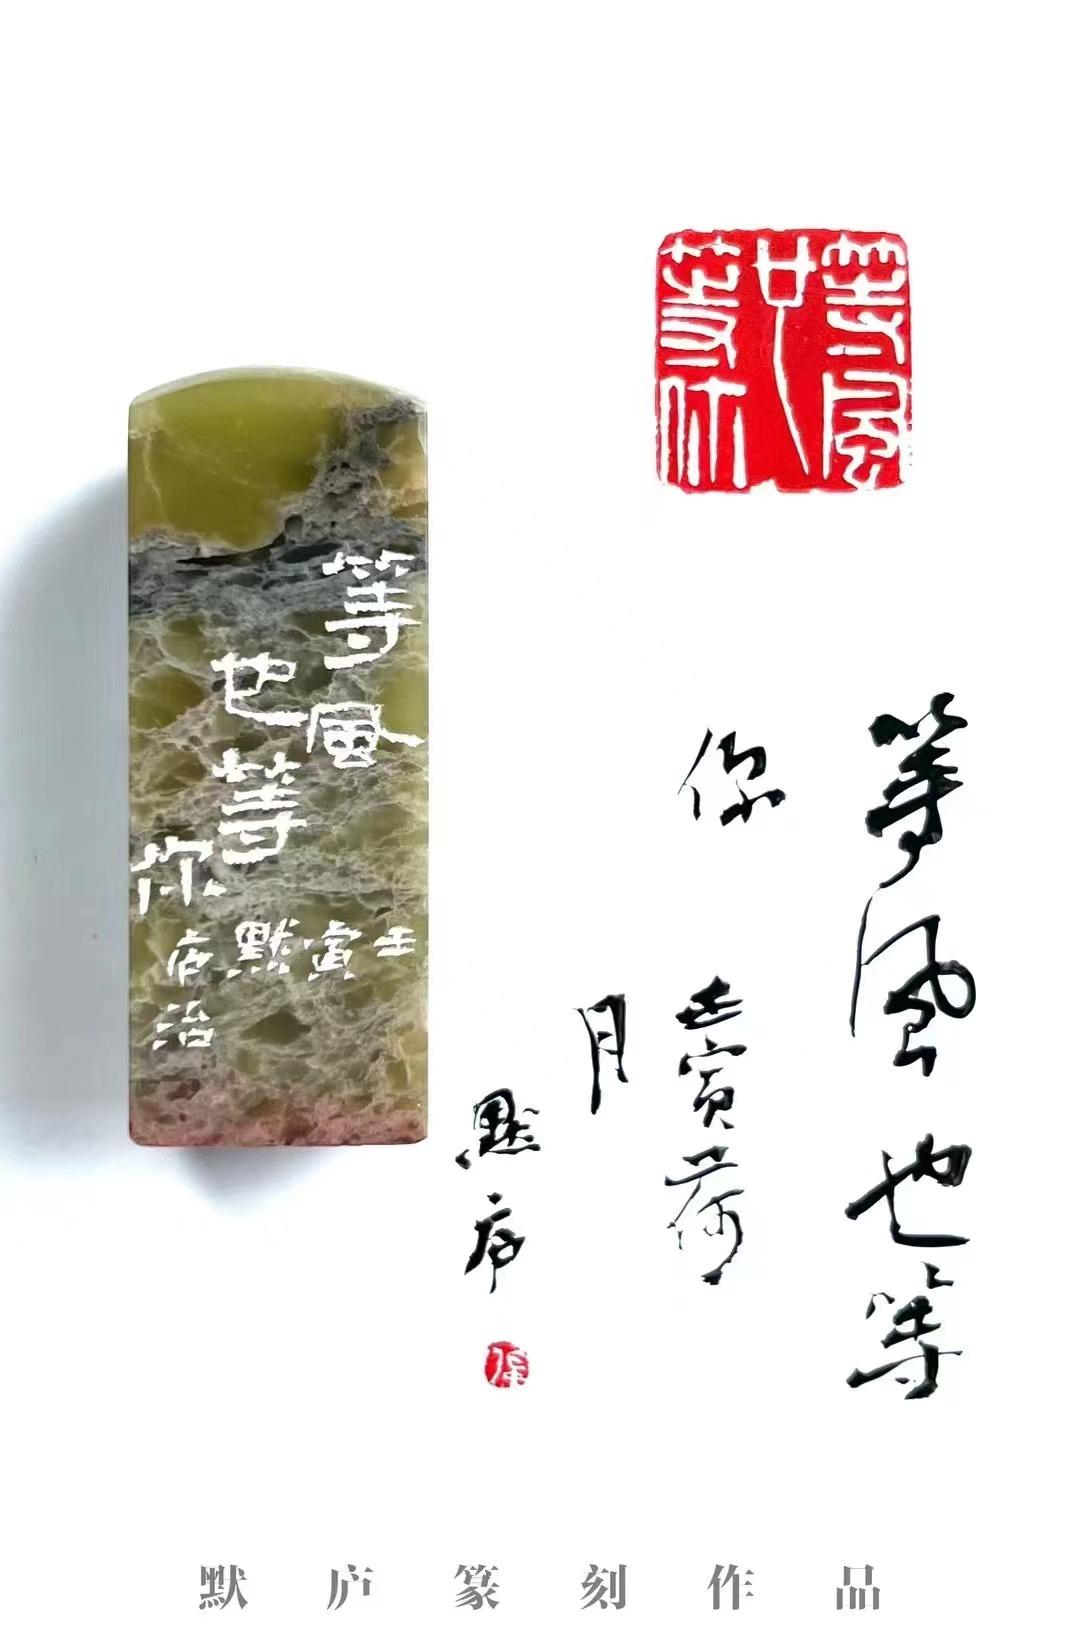 等风
也
等你
等風
也等
你
壬寅默庐治
等风也等
你
壬寅荷
月
默庐
默庐篆刻作品